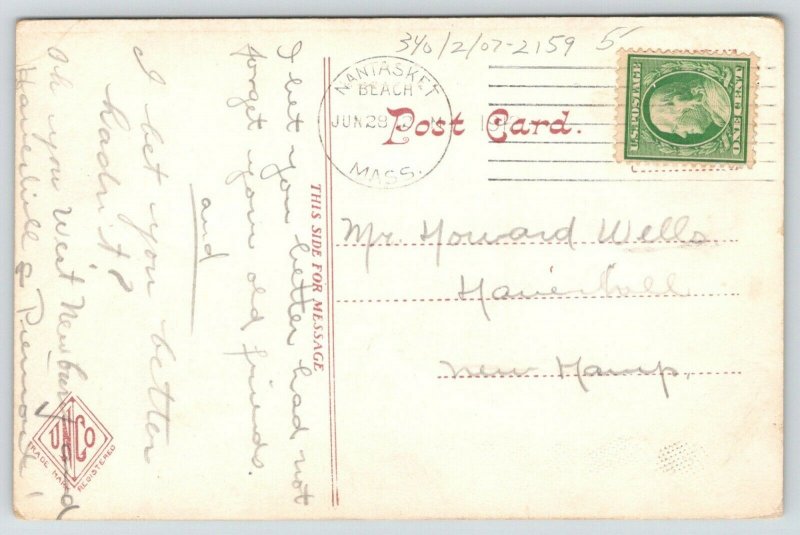 340/2/07-2159 5
NANTASKET
BEACH
JUN 28
MASS.
U.S. POSTAGE
ONE CENT
Post Card.
THIS SIDE FOR MESSAGE
Mr. Howard Wells
Haverhill
New Hamp.
I bet you better had not
forget your old friends.
and
I bet you better
hadn't
Oh you West Newbury and
Haverhill & Piermont!
U Co
TRADE MARK
REGISTERED